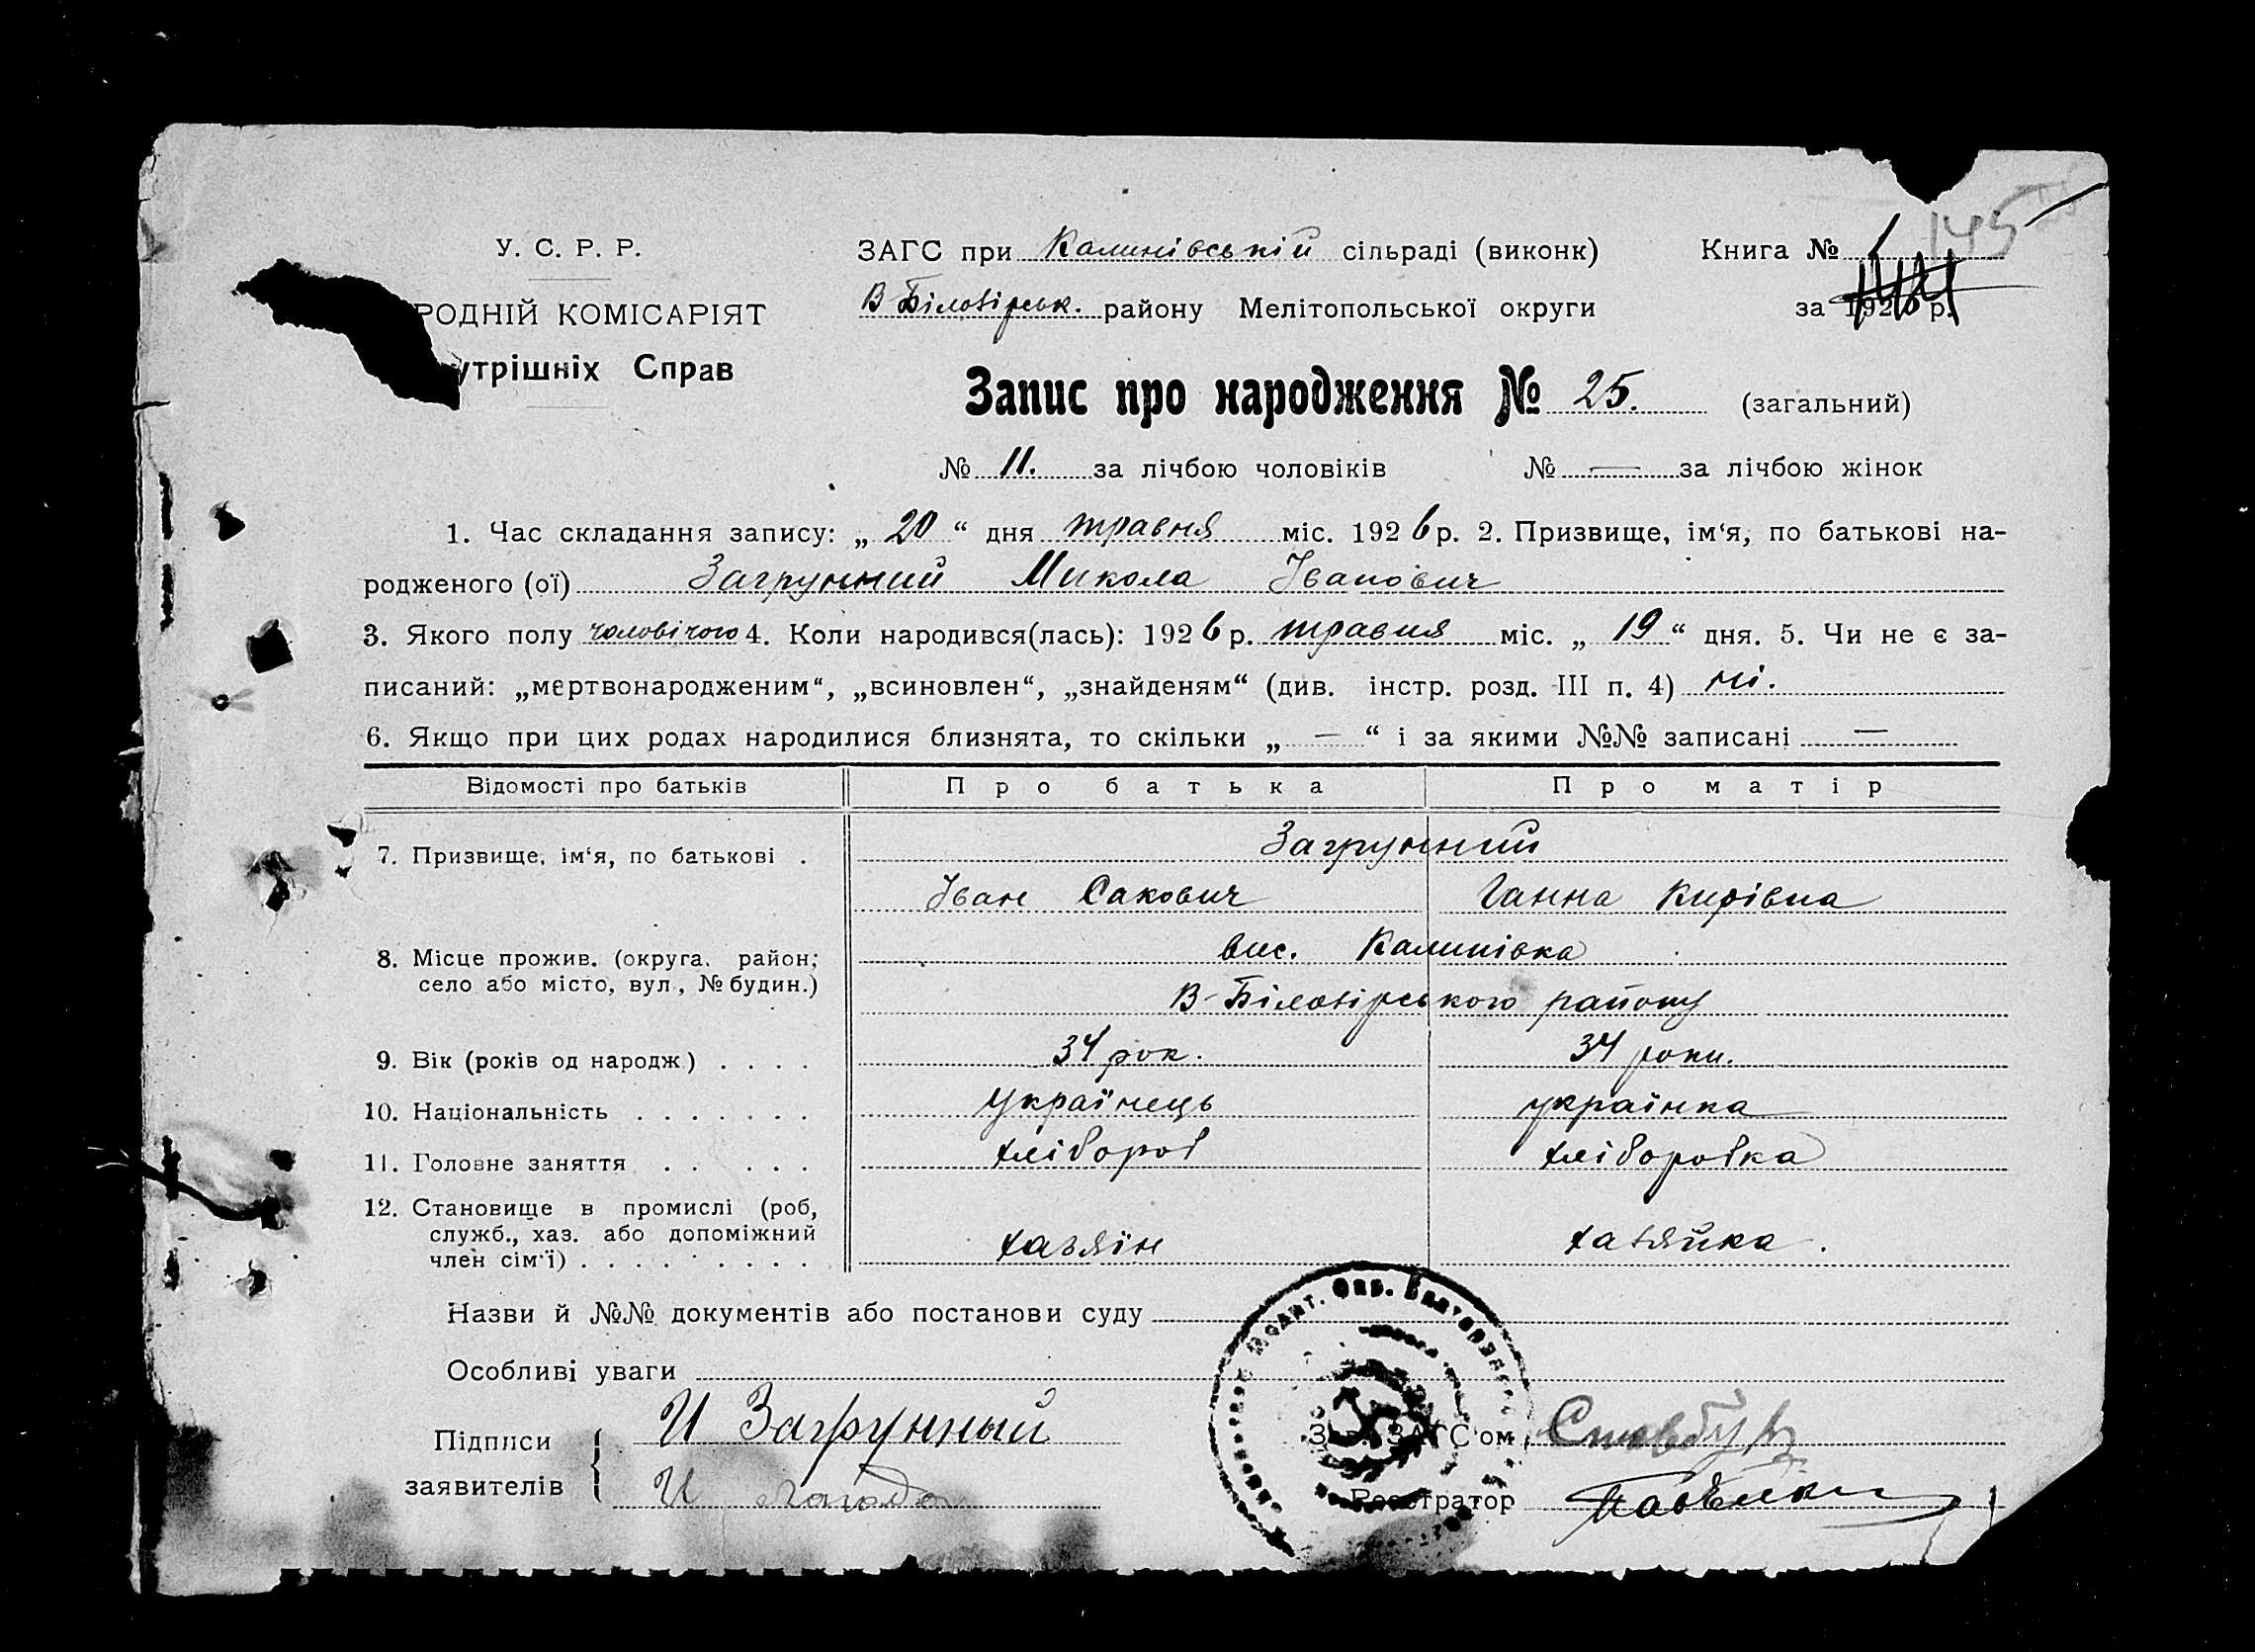 145
У. С. Р. Р.
ЗАГС при Калинівській сільраді (виконк)
Книга № 1
РОДНІЙ КОМІСАРІЯТ
В-Білозірськ. району Мелітопольської округи
за 1926 р.
утрішніх Справ
Запис про народження № 25. (загальний)
№ 11. за лічбою чоловіків № — за лічбою жінок
1. Час складання запису: „ 20 “ дня травня міс. 1926 р. 2. Призвище, ім‘я, по батькові на-
родженого (ої) Загрунний Микола Іванович
3. Якого полу чоловічого 4. Коли народився(лась): 1926 р. травня міс. „ 19 “ дня. 5. Чи не є за-
писаний: „мертвонародженим“, „всиновлен“, „знайденям“ (див. інстр. розд. III п. 4) ні.
6. Якщо при цих родах народилися близнята, то скільки „ — “ і за якими №№ записані —
Відомості про батьків Про батька Про матір
Загрунний
7. Призвище, ім‘я, по батькові .
Іван Сакович Ганна Кирівна
вис. Калинівка
8. Місце прожив. (округа. район;
село або місто, вул., № будин.)
В-Білозірського району
9. Вік (років од народж) . . . . 34 рок. 34 роки.
10. Національність . . . . . . . Українець українка
11. Головне заняття . . . . . хлібороб хліборобка
12. Становище в промислі (роб,
служб., хаз. або допоміжний
член сім‘ї) . . . . . . . . хазяїн хазяйка.
Назви й №№ документів або постанови суду
Особливі уваги
Підписи
заявителів
И Загрунный
И
Зав. ЗАГС‘ом
Реєстратор